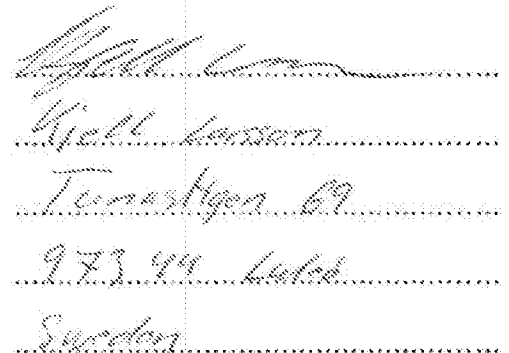 Kjell Larsson
Kjell Larsson
69
973 44 Luleå
Sweden